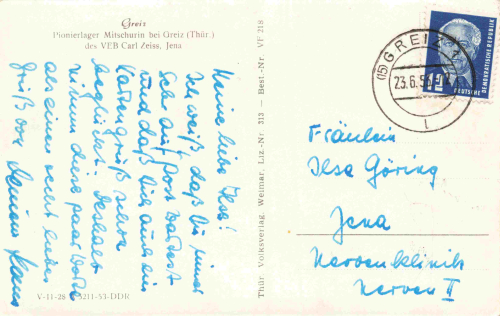 Greiz
Pionierlager Mitschurin bei Greiz (Thür.)
des VEB Carl Zeiss, Jena
Meine liebe Ilse!
Ich weiß, daß Du immer
sehr auf Post wartest
und daß Dich auch ein
Kartengruß sehr
beglückt. Deshalb
nimm diese paar Worte
als einen recht lieben
Gruß von
V-11-28 5211-53-DDR
Thür. Volksverlag, Weimar, Liz.-Nr. 313 — Best.-Nr. VF 218
(15) GREIZ 1
23.6.
DEUTSCHE
DEMOKRATISCHE REPUBLIK
12
Fräulein
Ilse Göring
Jena
Nervenklinik
Nerven II